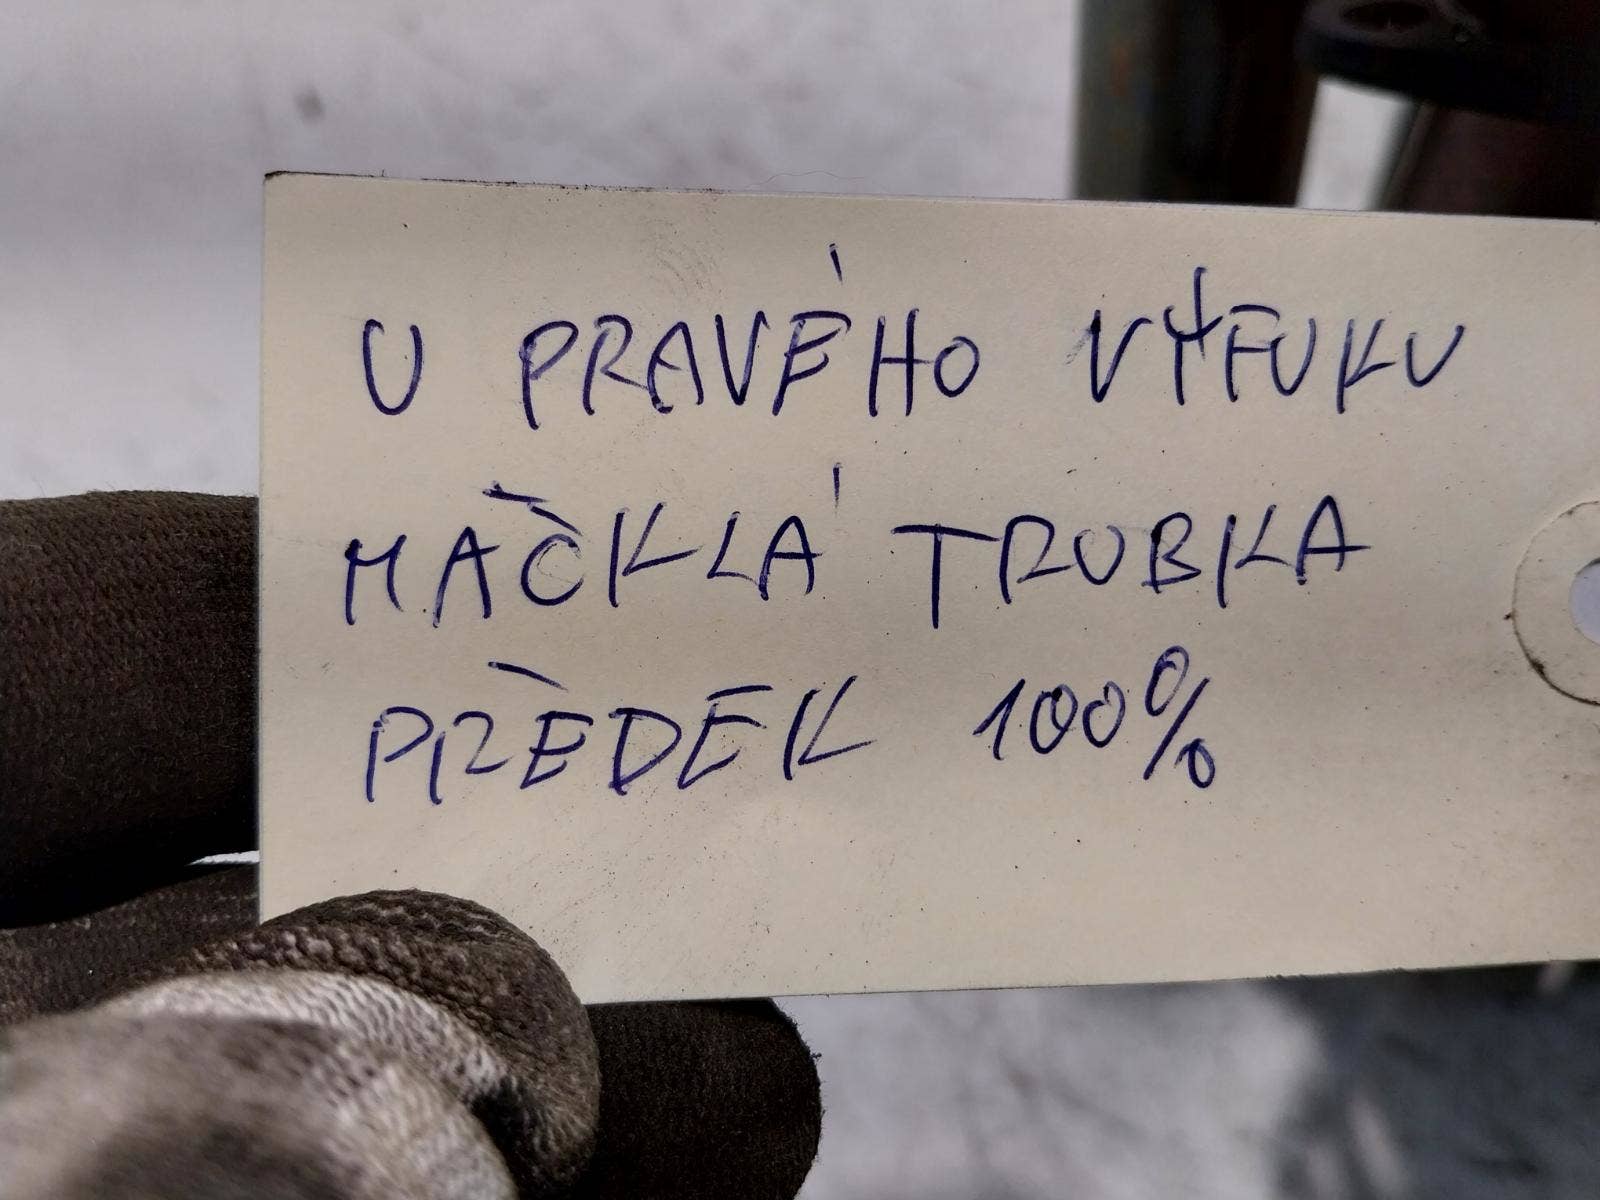 U PRAVÉHO VÝFUKU
MAČKLÁ TRUBKA
PŘEDEK 100%